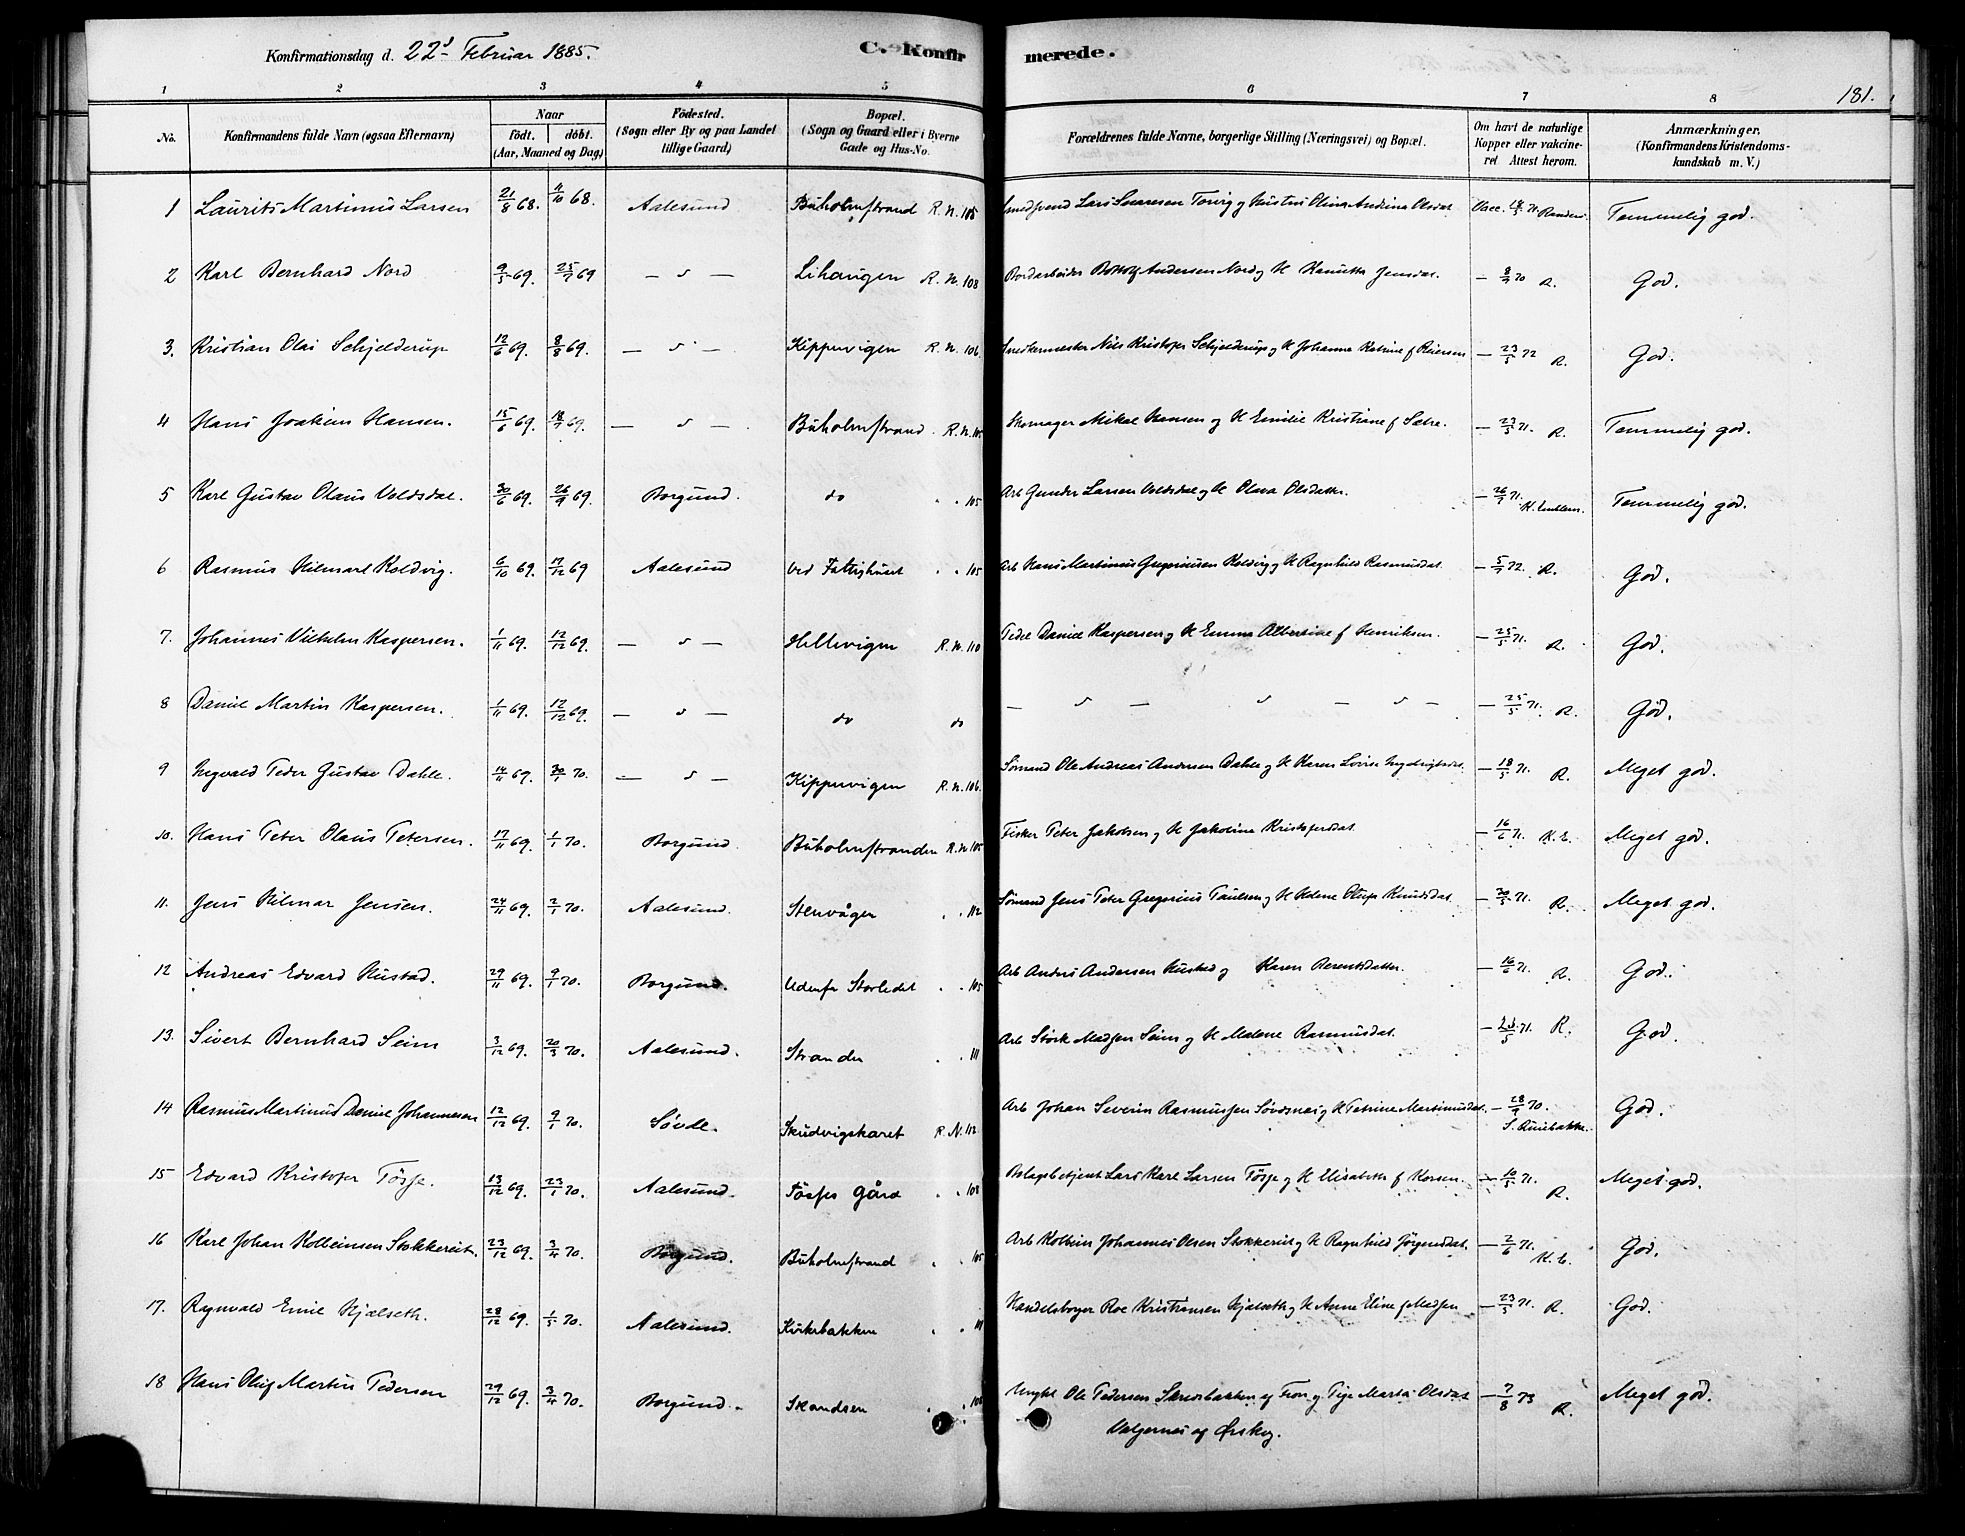 Konfirmationsdag d. 22d Februar 1885. C. Konfir merede.
181.
1 2 3 4 5 6 7 8
No. Konfirmandens fulde Navn (ogsaa Efternavn) Naar født. døbt. (Aar, Maaned og Dag) Fødested. (Sogn eller By og paa Landet tillige Gaard) Bopæl. (Sogn og Gaard eller i Byerne Gade og Hus-No. Forældrenes fulde Navne, borgerlige Stilling (Næringsvei) og Bopæl. Om havt de naturlige Kopper eller vakcineret Attest herom. Anmærkninger. (Konfirmandens Kristendomskundskab m. V.)
1 Laurits Martinus Larsen 21/8 68. 4/10 68. Aalesund Buholmstrand R. N. 105 Lars Hustru Olina Andrina Olsdat. Vacc. 71. Temmelig god.
2 Karl Bernhard Nord 9/5 69. 25/7 69 — " — Lihaugen R. N. 108 Bordarbeider Andersen Nord og H Jensdat. — 8/7 70 R. God.
3. Kristian Olai Schjelderup 12/6 69. 8/8 69. — " — Kippervigen R. N. 106. Snedkermester Nils Kristofer Schjelderup og H Johanne Katrine f Reiersen — 23/5 72 R. God.
4 Hans Joakim Hansen. 15/6 69. 18/7 69. — " — Buholmstrand. R. N. 105 Skomager Mikal Hansen og H Emilie Kristiane f Sætre. — 23/5 71. R. Temmelig god.
5 Karl Gustav Olaus Voldsdal. 30/6 69. 26/9 69. Borgund. do " " 105 Arb Gunder Larsen Voldsdal og H Olava Olsdatter. — 26/7 71. K. Emblem. Temmelig god.
6 Rasmus Hilmarl Koldvig. 6/10 69. 17/12 69 Aalesund Ved Fattighuset " " 105 Arb Hans Martinus Gregoriusen Koldvig og H Ragnhild Rasmusdat. — 5/7 72. R. God.
7. Johannes Vilhelm Kaspersen. 1/11 69. 12/12 69. — " — Hellevigen R. N. 110 Peder Daniel Kaspersen og H Emma Albertine f Henriksen. — 25/5 71. R. God.
8 Daniel Martin Kaspersen. 1/11 69. 12/12 69. — " — do do — " — " — " — — 25/5 71. R. God.
9 Ingvald Peder Gustav Dahle. 14/11 69. 30/1 70. — " — Kippervigen R. N. 106. Sømand Ole Andreas Andersen Dahle og H Karen Lovise — 18/5 71. R. Meget god.
10. Hans Peter Olaus Petersen. 17/11 69. 1/1 70. Borgund. Buholmstranden R. N. 105 Fisker Peter Jakobsen og H Jakobine Kristoferdat. — 16/6 71. K. E. Meget god.
11. Jens Hilmar Jensen. 24/11 69. 2/1 70. Aalesund. Stenvågen " " 112 Sømand Jens Peter Gregorius Paulsen og H Helene Knudsdat. — 30/5 71. R. Meget god.
12 Andreas Edvard Hustad. 29/11 69. 9/1 70. Borgund. Udenfor Storledet " " 105 Arb Anders Andersen Hustad og Karen Berentsdatter. — 16/6 71. R. God.
13. Sivert Bernhard Seim 3/12 69. 20/3 70. Aalesund. Stranden " " 111 Arb Størk Madsen Seim og H Malene Rasmusdat. — 23/5 71. R. God.
14 Rasmus Martinus Daniel Johannesen 12/12 69. 9/1 70. Søvde. Skudvigskaret R. N. 112 Arb Johan Severin Rasmussen Søvdsnes og H Petrine Martinusdat. — 28/9 70. S. God.
15 Edvard Kristofer Tøsse. 13/12 69. 23/1 70. Aalesund. Tøsses gård " " 108 Lars Karl Larsen Tøsse og H Elisabeth f Korsen. — 10/5 71. R. Meget god.
16 Karl Johan Kolbeinsen Stokkereit. 23/12 69. 3/4 70. Borgund. Buholmstrand " " 105 Arb Kolbein Johannes Olsen Stokkereit og H Ragnhild Jørgensdat. — 2/6 71. K. E. God.
17. Ragnvald Emil Hjelseth. 28/12 69. 1/5 70. Aalesund. Kirkebakken " " 111 Handelsborger Roe Kristiansen Hjelseth og H Anne Eline f Madsen — 23/5 71. R. God.
18 Hans Oluf Martin Pedersen 29/12 69. 3/4 70. Borgund. Skandsen " " 108 Ungkl Ole Pedersen af og Pige Marta Olsdat. — 7/8 73 R. Meget god.
Valgernes af Ørskog.